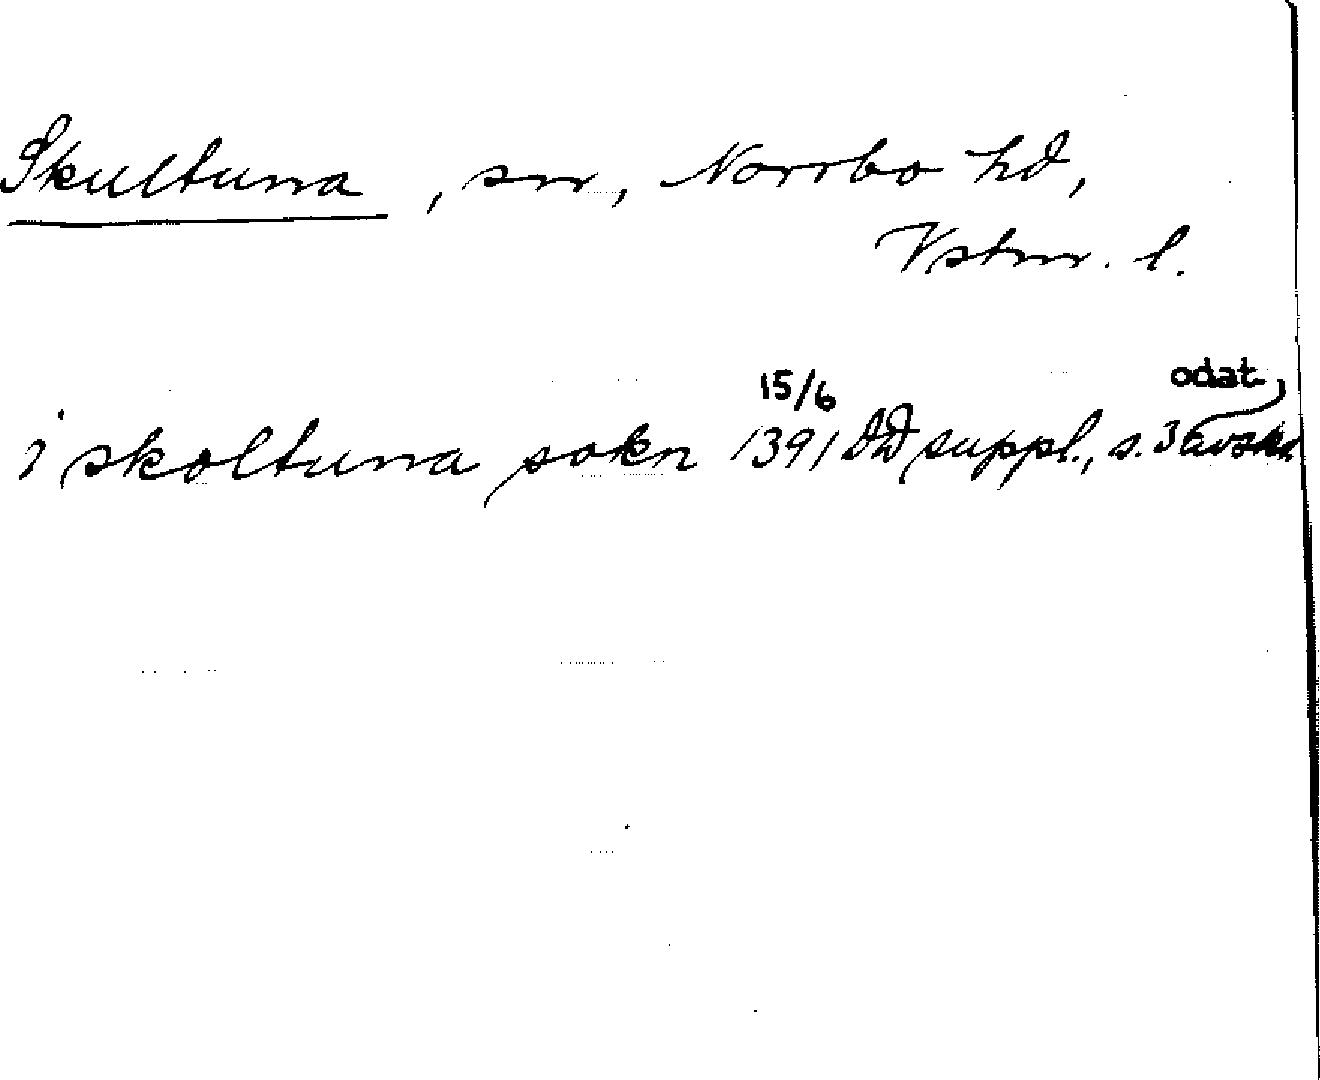 Skultuna, sn, Norrbo hd,
Vstm. l.
i skoltuna sokn 15/6 1391 DD suppl., s. 3 odat. avskr.